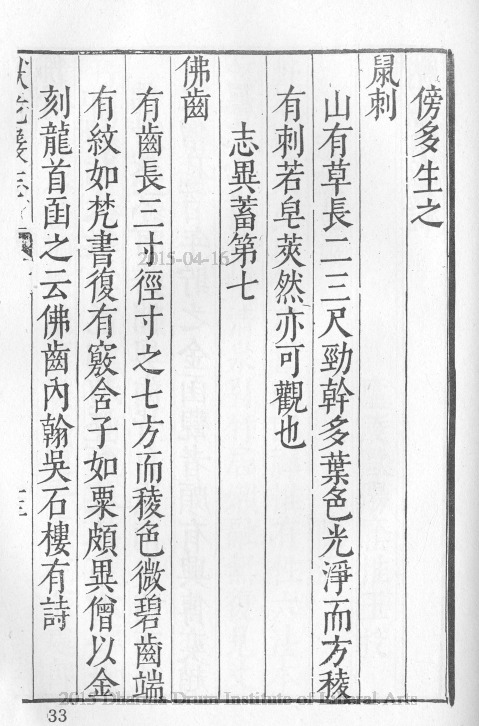 傍多生之
鼠刺
山有草長二三尺勁幹多葉色光淨而方稜
有刺若皂莢然亦可觀也
志異蓄第七
佛齒
有齒長三寸徑寸之七方而稜色微碧齒端
有紋如梵書復有竅舍子如粟頗異僧以金
刻龍首函之云佛齒內翰吳石樓有詩
2015-04-16
33
2015 Dharma Drum Institute of Liberal Arts